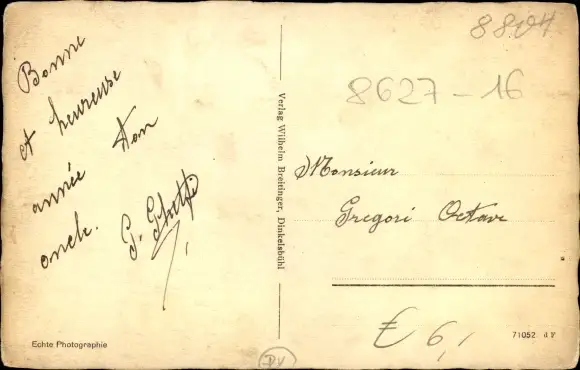 8804
8627-16
Bonne
et heureuse
année Ton
oncle.
Verlag Wilhelm Breitinger, Dinkelsbühl
Monsieur
Gregori Octave
Echte Photographie
€ 6,
71052 d F
DV